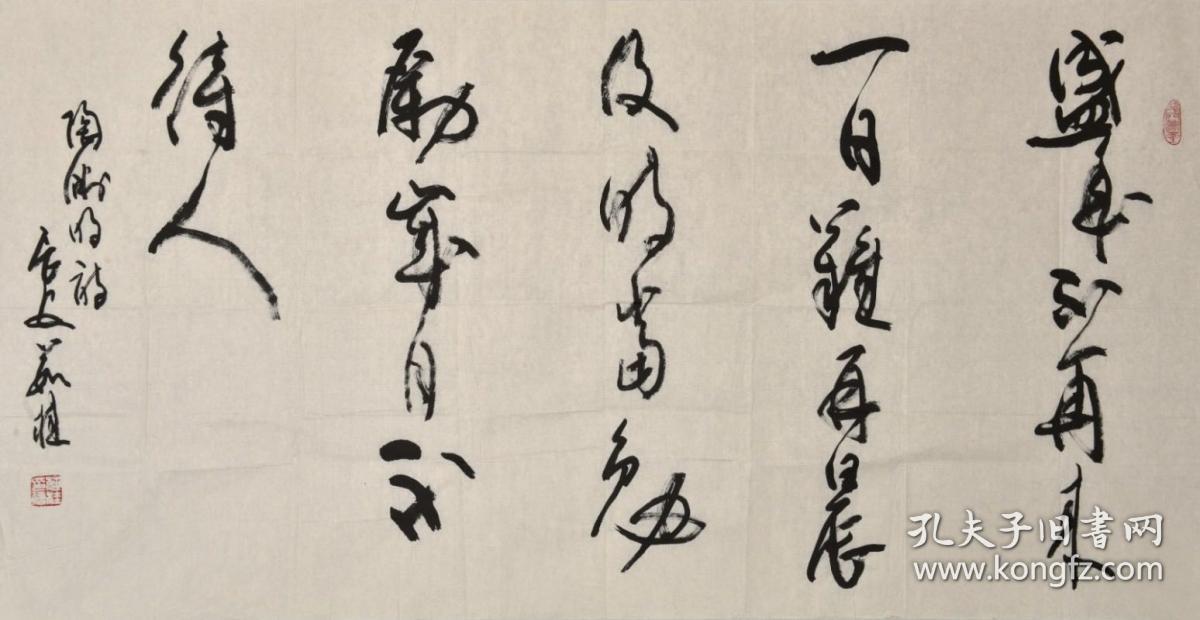 盛年不再来
一日難再晨
及时當勉
励歲月不
待人
陶渊明诗
长安茹桂
孔夫子旧書网
www.kongfz.com